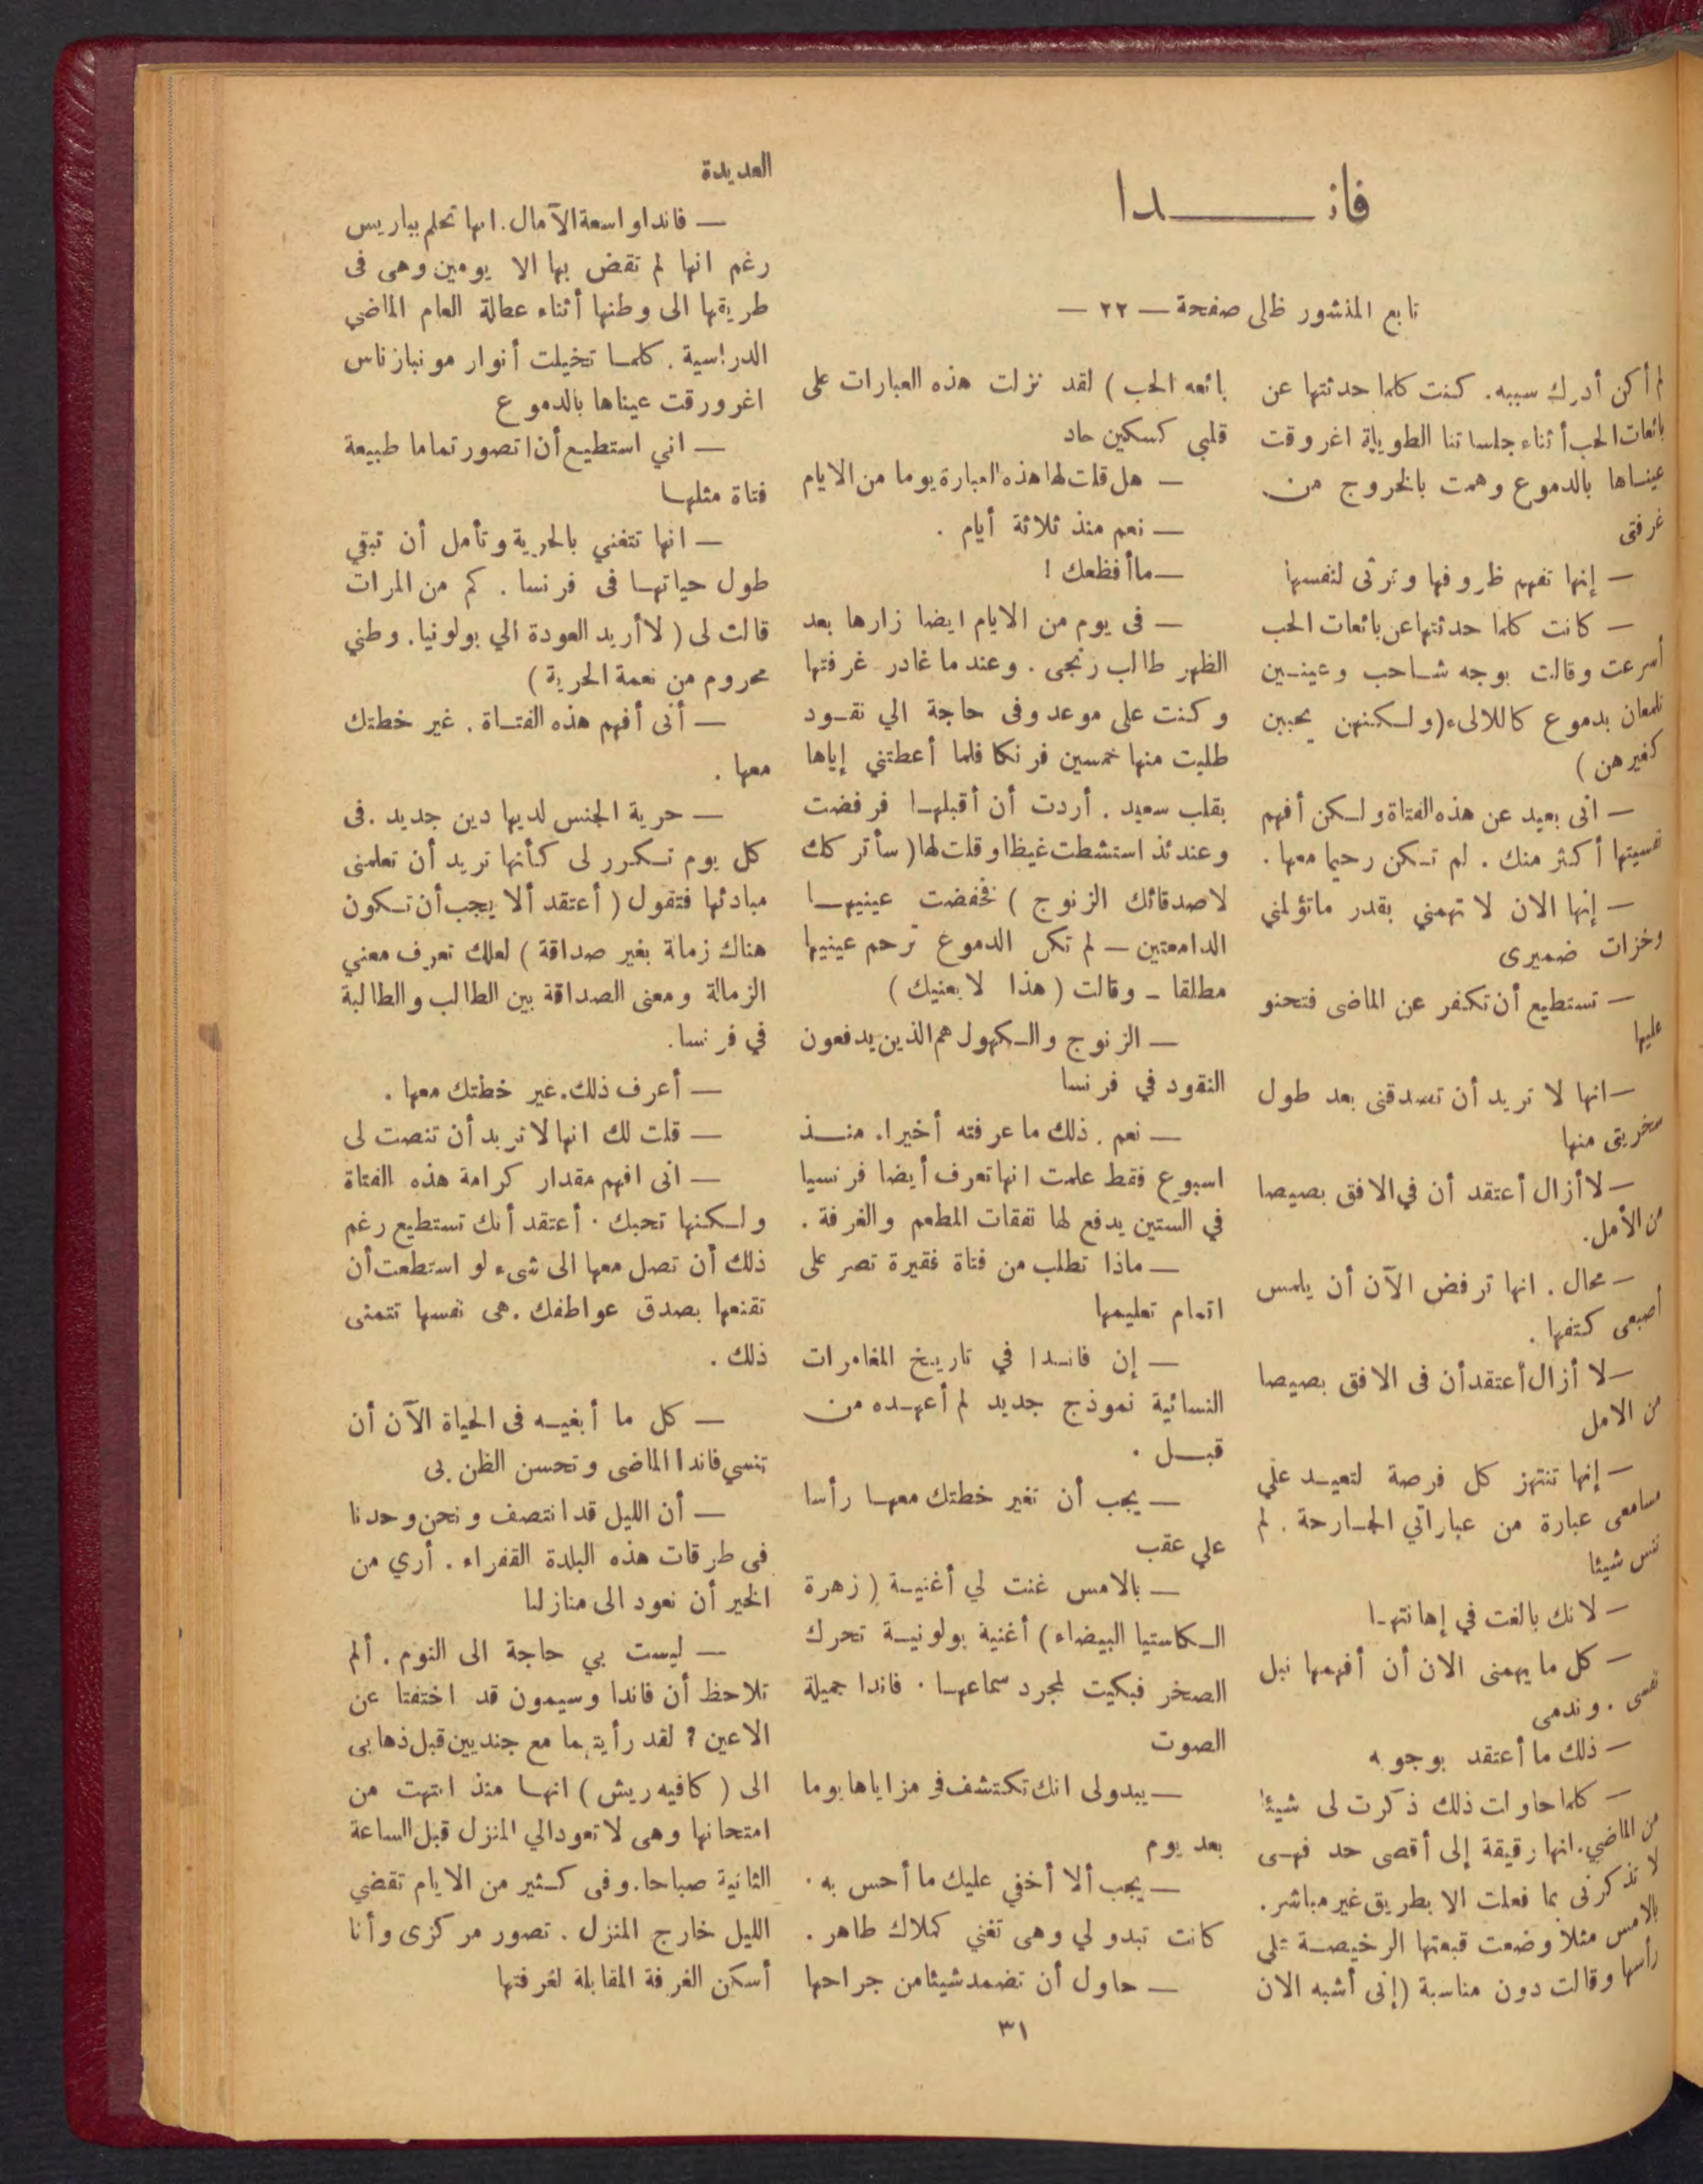 فانـــــدا
تابع المنشور ظلى صفحة — ٢٢ —
لم أكن أدرك سببه. كنت كلما حدثتها عن
بائعات الحب أثناء جلساتنا الطويلة اغروقت
عينـاها بالدموع وهمت بالخروج من
غرفتى
— إنها تفهم ظروفها وترثى لنفسها
— كانت كلما حدثتها عن بائعات الحب
أسرعت وقالت بوجه شـاحب وعينـين
تلمعان بدموع كاللالىء (ولـكنهن يحببن
كغيرهن )
— انى بعيد عن هذه الفتاة ولـكن أفهم
نفسيتها أكثر منك . لم تـكن رحيما معها .
— إنها الان لا تهمني بقدر ماتؤلمني
وخزات ضميرى
— تستطيع أن تكفر عن الماضى فتحنو
عليها
— انها لا تريد أن تصدقنى بعد طول
سخريتى منها
— لا أزال أعتقد أن في الافق بصيصا
من الأمل.
— محال . انها ترفض الآن أن يلمس
أصبعى كتفها .
— لا أزال أعتقد أن فى الافق بصيصا
من الامل
— إنها تنتهز كل فرصة لتعيـد علي
مسامعى عبارة من عباراتي الجـارحة . لم
تنس شيئا
— لانك بالغت في إهانتهـا
— كل ما يهمنى الان أن أفهمها نبل
نفسى . وندمى
— ذلك ما أعتقد بوجوبه
— كلما حاولت ذلك ذكرت لى شيئا
من الماضي. انها رقيقة إلى أقصى حد فهـى
لا تذكرنى بما فعلت الا بطريق غير مباشر.
بالامس مثلا وضعت قبعتها الرخيصـة على
رأسها وقالت دون مناسبة (إنى أشبه الان
بائعه الحب ) لقد نزلت هذه العبارات على
قلبي كسكين حاد
— هل قلت لها هذه العبارة يوما من الايام
— نعم منذ ثلاثة أيام .
— ماأفظعك !
— فى يوم من الايام ايضا زارها بعد
الظهر طالب زنجى . وعندما غادر غرفتها
وكنت على موعد وفى حاجة الي نقـود
طلبت منها خمسين فرنكا فلما أعطتني إياها
بقلب سعيد . أردت أن أقبلهـا فرفضت
وعندئذ استشطت غيظا وقلت لها (سأتركك
لاصدقائك الزنوج ) فخفضت عينيهـا
الدامعتين — لم تكن الدموع ترحم عينيها
مطلقا - وقالت (هذا لايعنيك )
— الزنوج والـكهول هم الذين يدفعون
النقود في فرنسا
— نعم . ذلك ما عرفته أخيرا. منـذ
اسبوع فقط علمت انها تعرف أيضا فرنسيا
في الستين يدفع لها نفقات المطعم والغرفة .
— ماذا تطلب من فتاة فقيرة تصر على
اتمام تعليمها
— إن فانـدا في تاريـخ المغامرات
النسائية نموذج جديد لم أعهـده من
قبـل .
— يجب أن تغير خطتك معهـا رأسا
علي عقب
— بالامس غنت لي أغنيـة ( زهرة
الـكاستيا البيضاء) أغنية بولونيـة تحرك
الصخر فبكيت لمجرد سماعهـا . فاندا جميلة
الصوت
— يبدولى انك تكتشف في مزاياها يوما
بعد يوم
— يجب ألا أخفي عليك ما أحس به .
كانت تبدو لي وهى تغني كملاك طاهر .
— حاول أن تضمد شيئا من جراحها
العديدة
— فاندا واسعة الآمال. انها تحلم بباريس
رغم انها لم تقض بها الا يومين وهى فى
طريقها الى وطنها أثناء عطلة العام الماضي
الدراسية . كلمـا تخيلت أنوار مونبارناس
اغرورقت عيناها بالدموع
— اني استطيـع أن اتصور تماما طبيعة
فتاة مثلهـا
— انها تتغني بالحرية وتأمل أن تبقي
طول حياتهـا فى فرنسا . كم من المرات
قالت لى ( لاأريد العودة الي بولونيا. وطني
محروم من نعمة الحرية )
— أنى أفهم هذه الفتـاة . غير خطتك
معها .
— حرية الجنس لديها دين جديد .فى
كل يوم تـكرر لى كـأنها تريد أن تعلمنى
مبادئها فتقول ( أعتقد ألا يجب أن تـكون
هناك زمالة بغير صداقة ) لعلك تعرف معني
الزمالة ومعنى الصداقة بين الطالب والطالبة
في فرنسا.
— أعرف ذلك. غير خطتك معها .
— قلت لك انها لا تريد أن تنصت لى
— انى افهم مقدار كرامة هذه الفتاة
ولـكنها تحبك . أعتقد أنك تستطيع رغم
ذلك أن تصل معها الى شىء لو استطعت أن
تقنعها بصدق عواطفك . هى نفسها تتمنى
ذلك .
— كل ما أبغيـه فى الحياة الآن أن
تنسي فاندا الماضى وتحسن الظن بى
— أن الليل قد انتصف ونحن وحدنا
فى طرقات هذه البلدة القفراء . أري من
الخير أن نعود الى منازلنا
— ليست بي حاجة الى النوم . ألم
تلاحظ أن فاندا وسيمون قد اختفتا عن
الاعين ؟ لقد رأيتهما مع جنديين قبل ذهابى
الى ( كافيه ريش ) انهـا منذ انتهت من
امتحانها وهى لا تعود الي المنزل قبل الساعة
الثانية صباحا. وفى كـثير من الايام تقضي
الليل خارج المنزل . تصور مركزى وأنا
أسكن الغرفة المقابلة لغرفتها
٣١